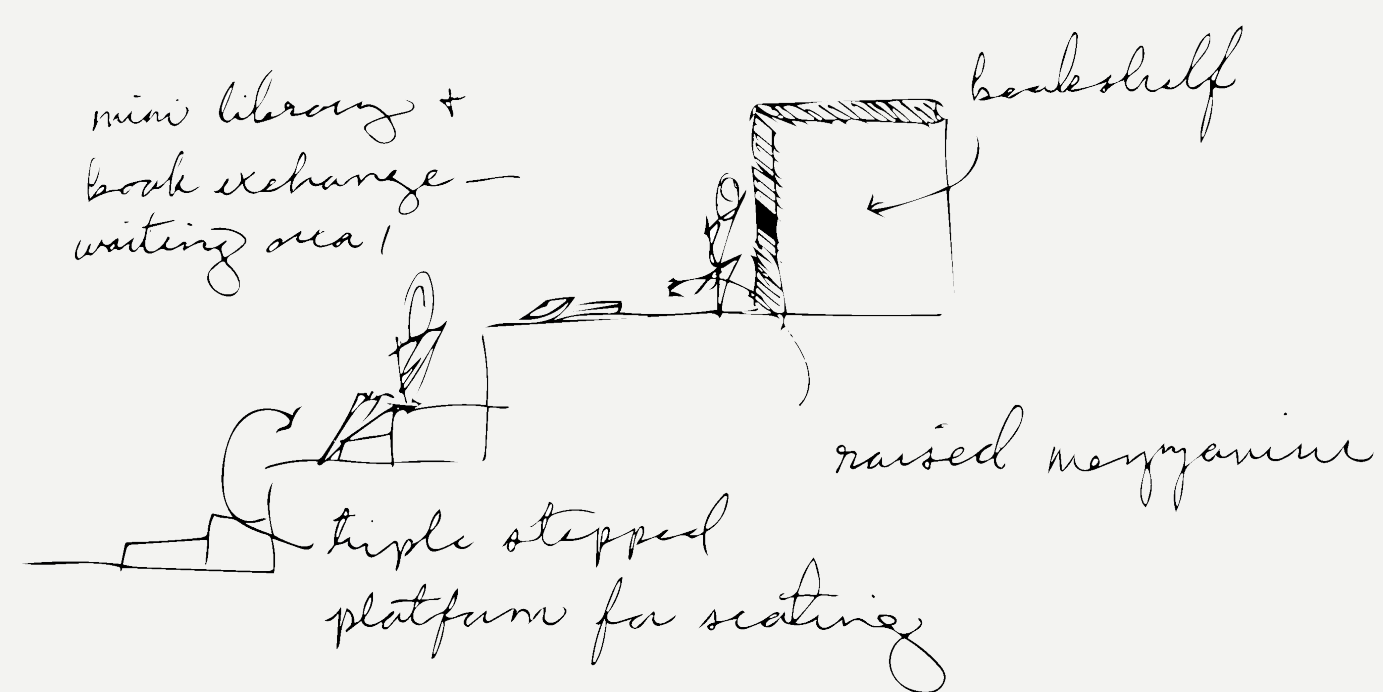 mini library +
book exchange —
waiting area /
bookshelf
raised mezzanine
triple stepped
platform for seating